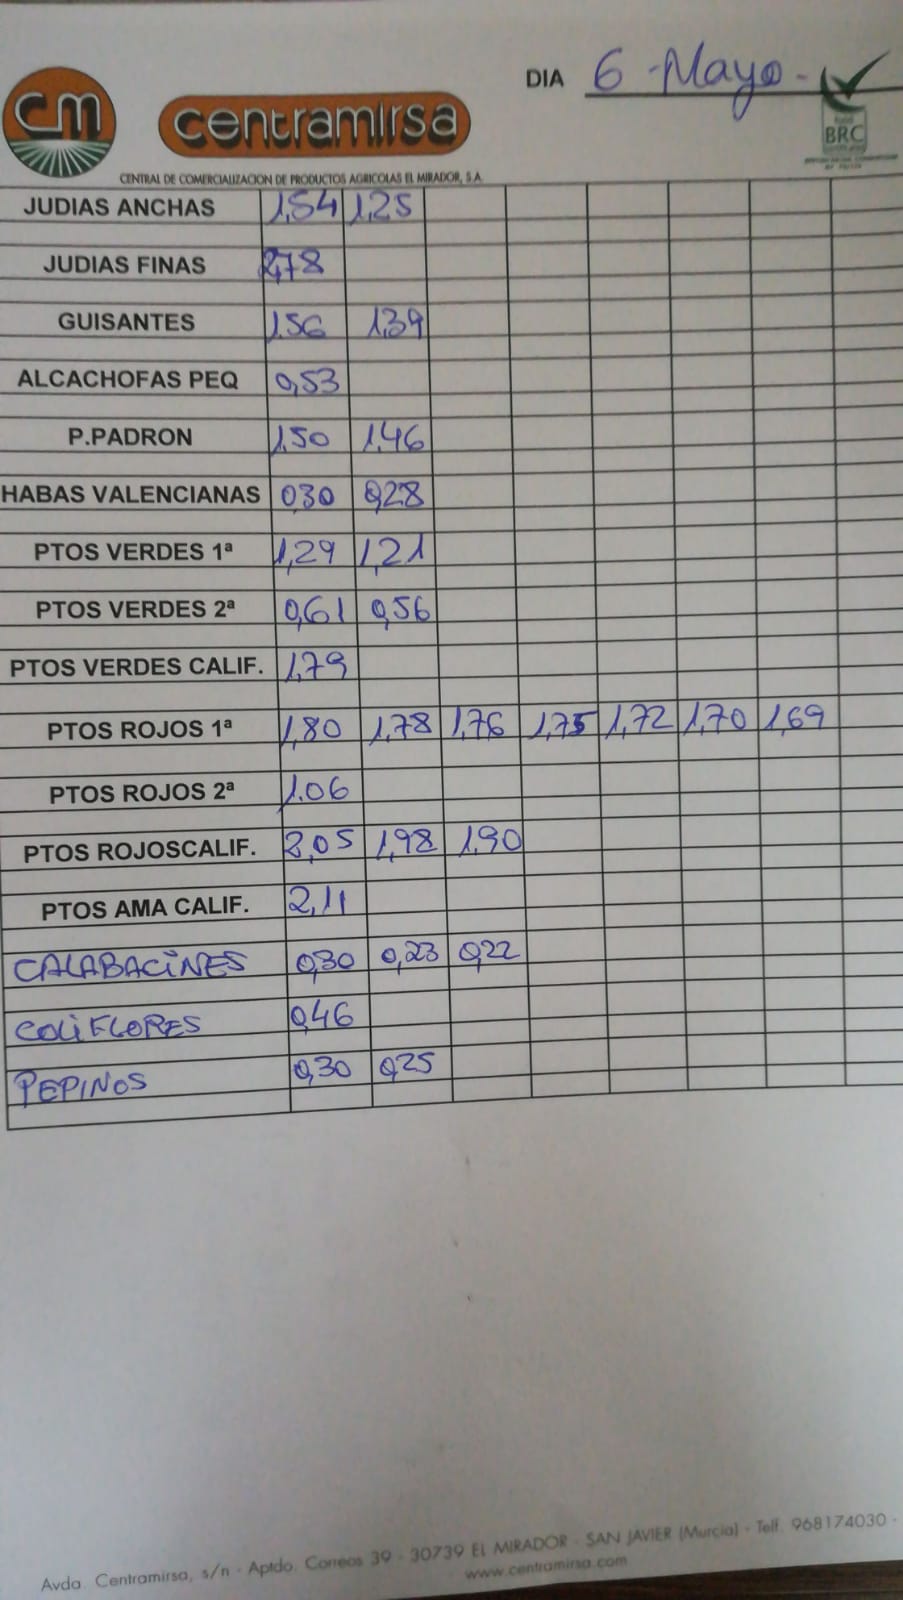 DIA 6 - Mayo -
CM centramirsa
BRC
CENTRAL DE COMERCIALIZACION DE PRODUCTOS AGRICOLAS EL MIRADOR, S.A.
JUDIAS ANCHAS 1,54 1,25
JUDIAS FINAS 2,78
GUISANTES 1.56 1,39
ALCACHOFAS PEQ 0,53
P.PADRON 1,50 1,46
HABAS VALENCIANAS 0,30 0,28
PTOS VERDES 1ª 1,29 1,21
PTOS VERDES 2ª 0,61 0,56
PTOS VERDES CALIF. 1,79
PTOS ROJOS 1ª 1,80 1,78 1,76 1,75 1,72 1,70 1,69
PTOS ROJOS 2ª 1.06
PTOS ROJOSCALIF. 2,05 1,98 1,90
PTOS AMA CALIF. 2,11
CALABACINES 0,30 0,23 0,22
COLIFLORES 0,46
PEPINOS 0,30 0,25
Avda. Centramirsa, s/n - Aptdo. Correos 39 - 30739 EL MIRADOR - SAN JAVIER (Murcia) - Telf. 968174030 -
www.centramirsa.com